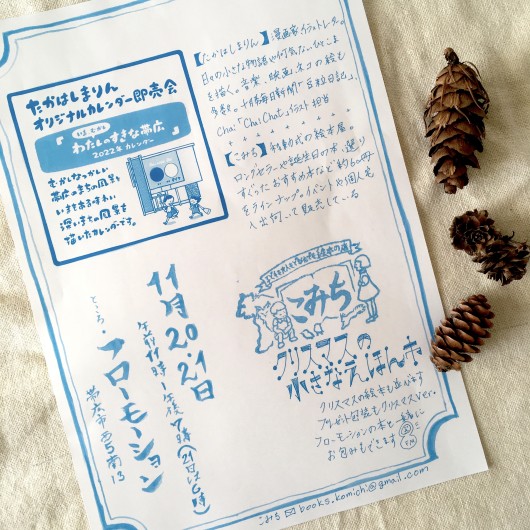 たかはしまりん
オリジナルカレンダー即売会
いま、むかし
わたしのすきな帯広
2022年カレンダー
むかしなつかしい
帯広のまちの風景と
いまもあるあじわい
深いまちの風景を
描いたカレンダーです。
【たかはしまりん】漫画家・イラストレーター。
日々の小さな物語や何気ないひとこま
を描く。音楽、映画、ネコの絵も
多数。十勝毎日新聞「豆粒日記」、
Chai「Chai Chat」イラスト担当
【こみち】移動式の絵本屋。
ロングセラーや誕生日の本、選り
すぐったおすすめ本など約60冊
をラインナップ。イベントや個人宅
へ出向いて販売している
11月20・21日
午前11時〜午後7時(21日は6時)
ところ・フローモーション
帯広市西5南13
こみち
クリスマスの
小さなえほん市
クリスマスの絵本も並びます
プレゼント包装もクリスマスver.
フローモーションの本と一緒に
お包みもできます
こみち ✉ books.komichi@gmail.com